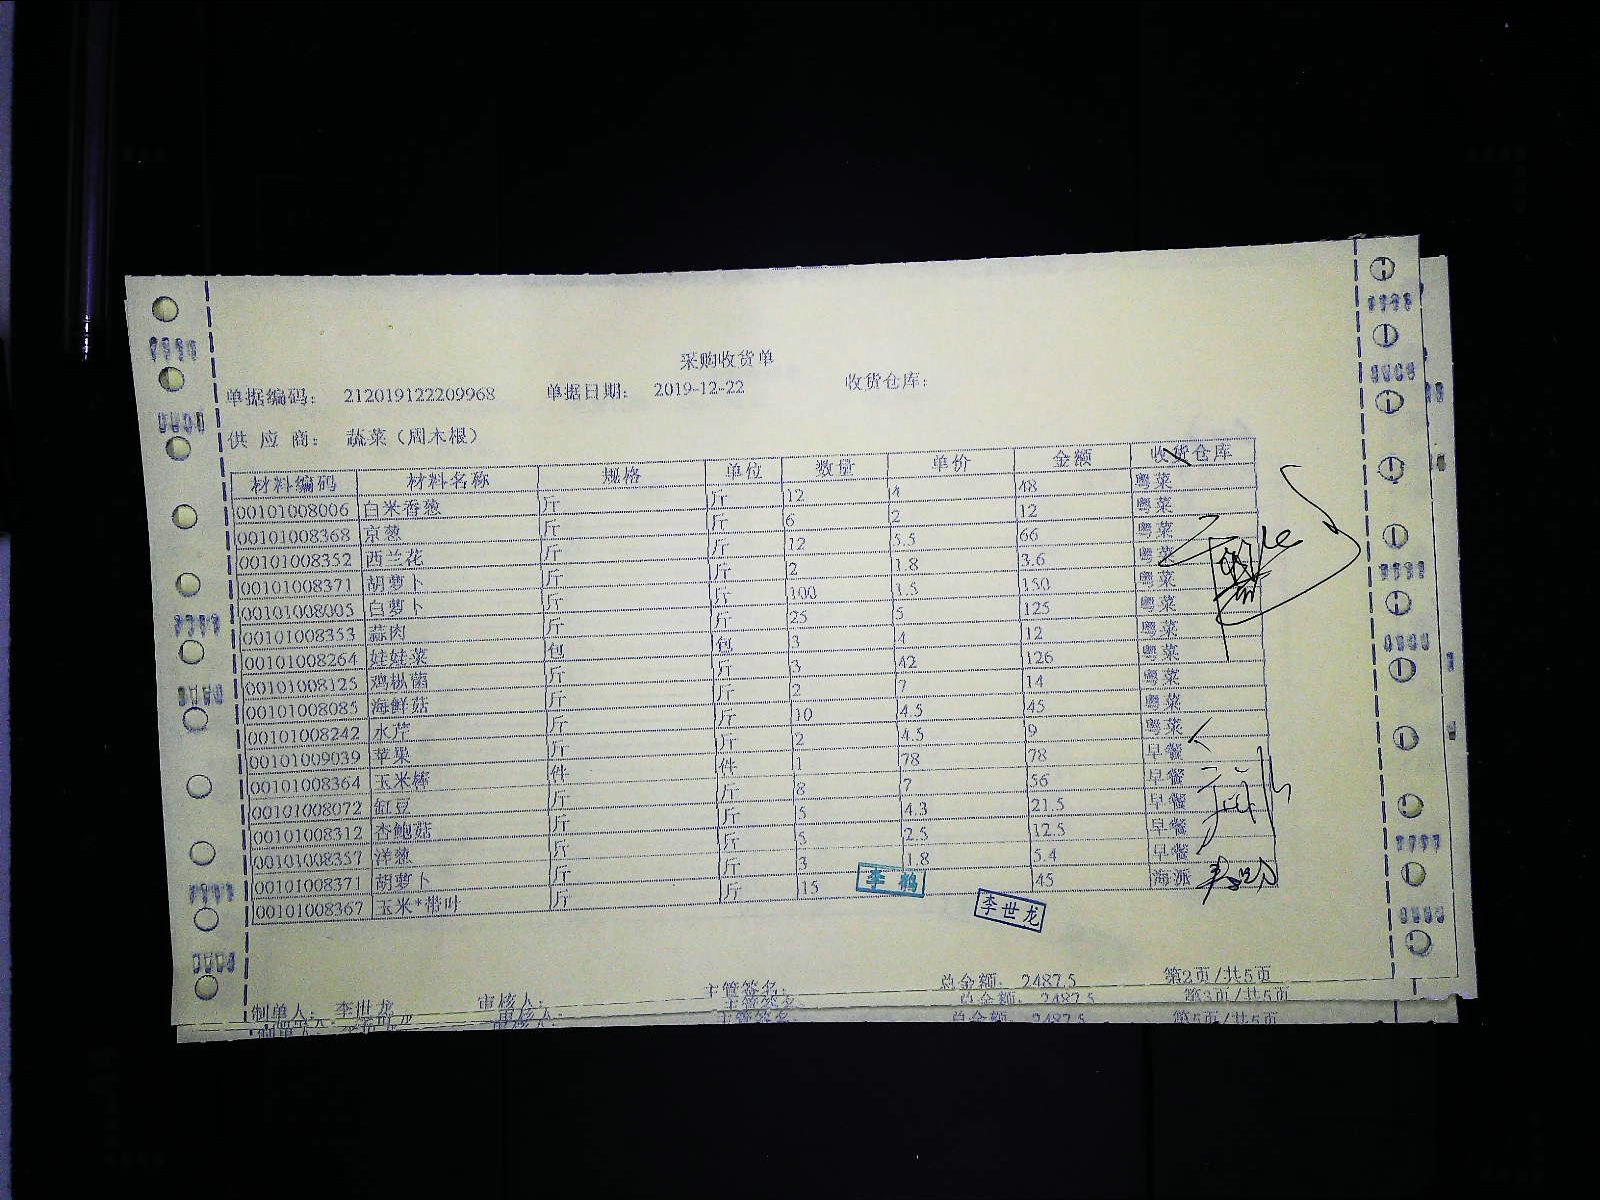 采购收货单
单据编码: 212019122209968 单据日期: 2019-12-22 收货仓库:
供 应 商: 蔬菜(周木根)
材料编码 材料名称 规格 单位 数量 单价 金额 收货仓库
00101008006 白米香葱 斤 斤 12 4 48 粤菜
00101008368 京葱 斤 斤 6 2 12 粤菜
00101008352 西兰花 斤 斤 12 5.5 66 粤菜
00101008371 胡萝卜 斤 斤 2 1.8 3.6 粤菜
00101008005 白萝卜 斤 斤 100 1.5 150 粤菜
00101008353 蒜肉 斤 斤 25 5 125 粤菜
00101008264 娃娃菜 包 包 3 4 12 粤菜
00101008125 鸡枞菌 斤 斤 3 42 126 粤菜
00101008085 海鲜菇 斤 斤 2 7 14 粤菜
00101008242 水芹 斤 斤 10 4.5 45 粤菜
00101009039 苹果 斤 斤 2 4.5 9 粤菜
00101008364 玉米棒 件 件 1 78 78 早餐
00101008072 缸豆 斤 斤 8 7 56 早餐
00101008312 杏鲍菇 斤 斤 5 4.3 21.5 早餐
00101008357 洋葱 斤 斤 5 2.5 12.5 早餐
00101008371 胡萝卜 斤 斤 3 1.8 5.4 早餐
00101008367 玉米*带叶 斤 斤 15 45 海派
李鹤
李世龙
制单人: 李世龙 审核人: 主管签名: 总金额: 2487.5 第2页/共5页
主管签名: 总金额: 2487.5 第3页/共5页
总金额: 2487.5 第5页/共5页